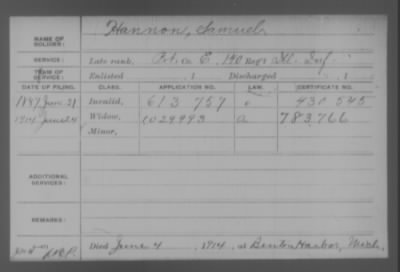 NAME OF SOLDIER: Hannon, Samuel
SERVICE: Late rank, Pvt. Co. E, 140 Reg't Ill. Inf
TERM OF SERVICE: Enlisted , 1 Discharged , 1
DATE OF FILING. CLASS. APPLICATION NO. LAW. CERTIFICATE NO.
1887 June 21 Invalid, 613 757 430 545
1914 June 24 Widow, 1029993 a 783,766
Minor,
ADDITIONAL SERVICES:
REMARKS:
Died June 4, 1914, at Benton Harbor, Mich.